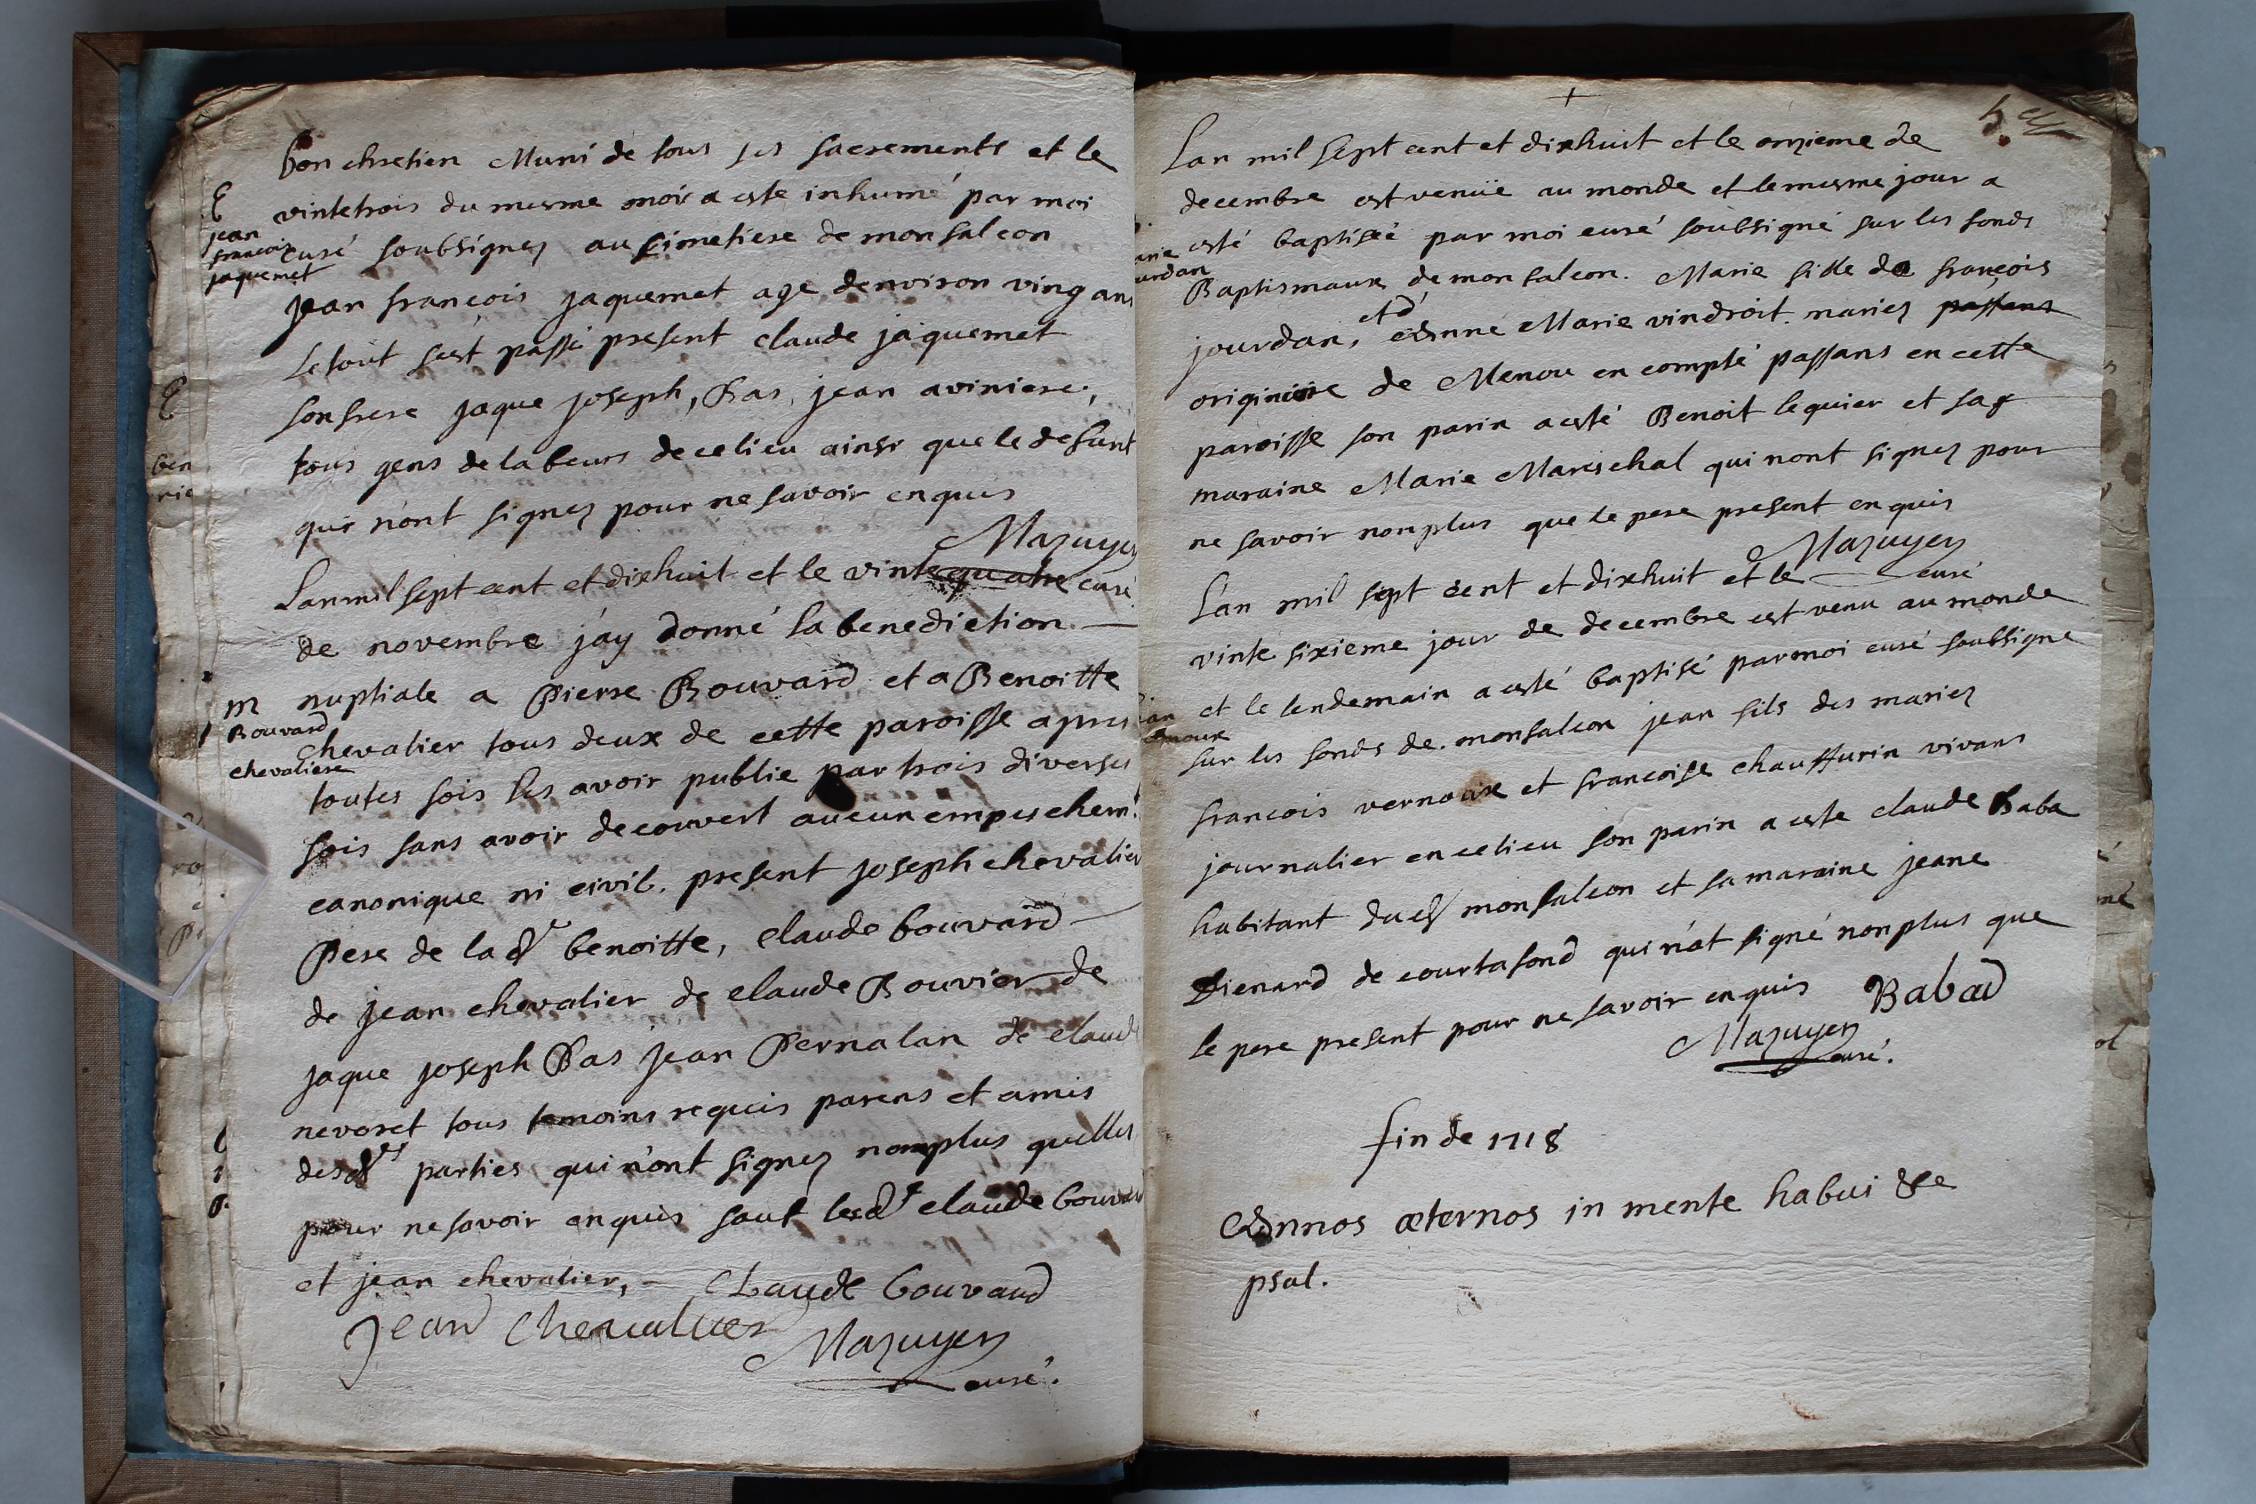 bon chretien Muni de tous ses sacrements et le
E vintetrois du mesme mois a este inhumé par moi
jean
francois
jaquemet
curé soubsignez au cimetiere de monfalcon
jean françois jaquemet age denviron ving ans
le tout sest passé present claude jaquemet
son frere jaque joseph, Bas, jean aviniere,
tous gens de labeurs de ce lieu ainsi que le defunt
qui n'ont signez pour ne savoir enquis
Mazuyer
curé
Lan mil sept cent et dixhuit et le vintequatre
de novembre j'ay donné la benediction
m nuptiale a Pierre Bouvard et a Benoitte
Bouvard
chevaliere
chevalier tous deux de cette paroisse apres
toutes fois les avoir publie par trois diverses
fois sans avoir decouvert aucun empeschemt
canonique ni civil. present joseph chevalier
Pere de la dte benoitte, claude bouvard
de jean chevalier de claude Bouvier de
jaque joseph Bas jean Pernalan de claude
nevoret tous temoins requis parens et amis
desdtes parties qui n'ont signez nomplus quelles
pour ne savoir enquis sauf lesdt claude bouvard
et jean chevalier,
Claude bouvard
jean Chevallier
Mazuyer
curé.
5e
Lan mil sept cent et dixhuit et le onzieme de
decembre est venüe au monde et le mesme jour a
esté baptisée par moi curé soubsigné sur les fonds
arie
urdan
Baptismaux de monfalcon. Marie fille de françois
jourdan, et d'Anne Marie vindroit. mariez passans
originaire de Menou en compté passans en cette
paroisse son parin a esté Benoit lequier et sa
maraine Marie Mareschal qui nont signez pour
ne savoir nonplus que le pere present enquis
Mazuyer
curé
Lan mil sept cent et dixhuit et le
vinte sixieme jour de decembre est venu au monde
et le lendemain a esté baptisé par moi curé soubsigne
sur les fonds de monfalcon jean fils des mariez
francois vernoux et francoise chauffurin vivans
journalier en ce lieu son parin a este claude Baba
habitant du monfalcon et sa maraine jeane
Dienard de courtafond qui n'at signé nonplus que
le pere present pour ne savoir enquis
Babad
Mazuyer
curé.
fin de 1718
Annos æternos in mente habui &c
psal.